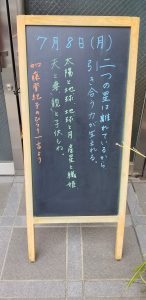 7月8日(月)
二つの星は離れているから
引き合う力が生まれる。
太陽と地球 地球と月 彦星と織姫
天と妻 親と子供もね。